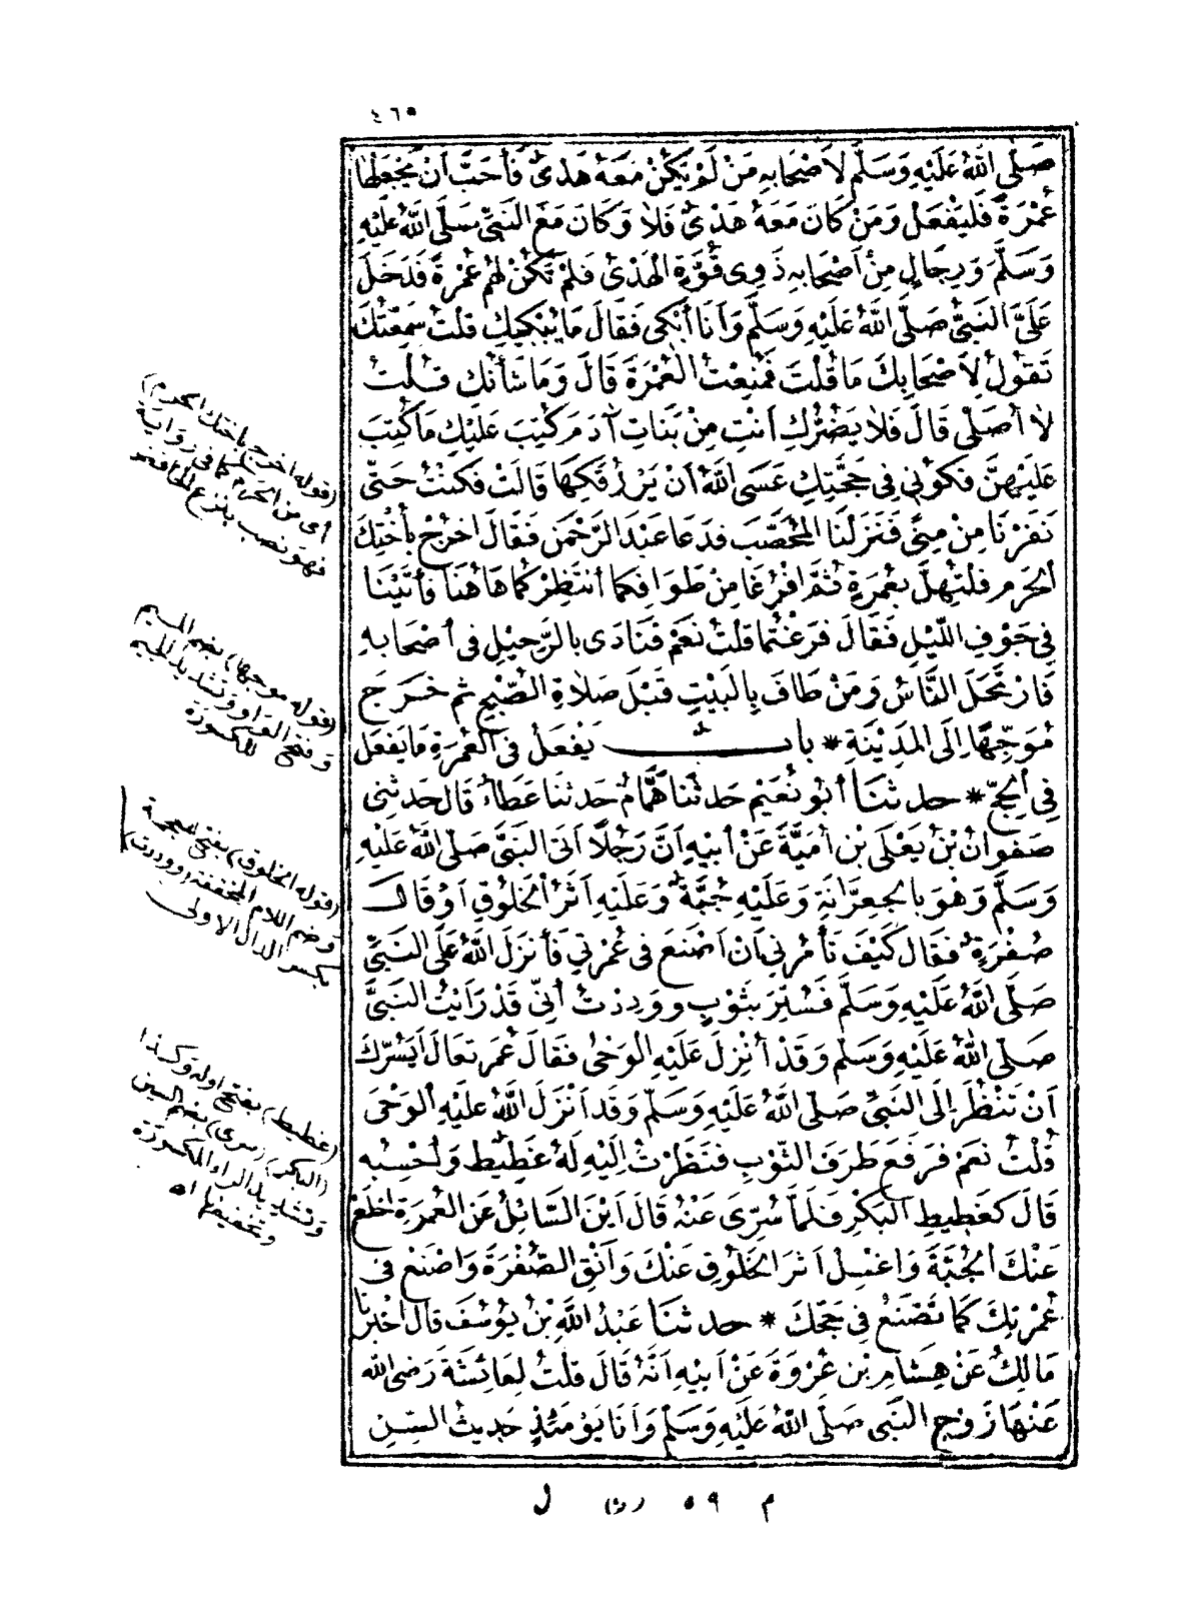 ٤٦٥
صَلَّى اللَّهُ عَلَيْهِ وَسَلَّمَ لِأَصْحَابِهِ مَنْ لَمْ يَكُنْ مَعَهُ هَدْىٌ فَأَحَبَّ أَنْ يَجْعَلَهَا
عُمْرَةً فَلْيَفْعَلْ وَمَنْ كَانَ مَعَهُ هَدْىٌ فَلَا وَكَانَ مَعَ النَّبِىِّ صَلَّى اللَّهُ عَلَيْهِ
وَسَلَّمَ وَرِجَالٍ مِنْ أَصْحَابِهِ ذَوِى قُوَّةٍ الْهَدْىُ فَلَمْ تَكُنْ لَهُمْ عُمْرَةً فَدَخَلَ
عَلَىَّ النَّبِىُّ صَلَّى اللَّهُ عَلَيْهِ وَسَلَّمَ وَأَنَا أَبْكِى فَقَالَ مَا يُبْكِيكِ قُلْتُ سَمِعْتُكَ
تَقُولُ لِأَصْحَابِكَ مَا قُلْتَ فَمُنِعْتُ الْعُمْرَةَ قَالَ وَمَا شَأْنُكِ قُلْتُ
لَا أُصَلِّى قَالَ فَلَا يَضُرُّكِ أَنْتِ مِنْ بَنَاتِ آدَمَ كُتِبَ عَلَيْكِ مَا كُتِبَ
عَلَيْهِنَّ فَكُونِى فِى حَجَّتِكِ عَسَى اللَّهُ أَنْ يَرْزُقَكِهَا قَالَتْ فَكُنْتُ حَتَّى
نَفَرْنَا مِنْ مِنًى فَنَزَلْنَا الْمُحَصَّبَ فَدَعَا عَبْدَ الرَّحْمَنِ فَقَالَ اخْرُجْ بِأُخْتِكَ
الْحَرَمَ فَلْتُهِلَّ بِعُمْرَةٍ ثُمَّ افْرُغَا مِنْ طَوَافِكُمَا أَنْتَظِرْكُمَا هَاهُنَا فَأَتَيْنَا
فِى جَوْفِ اللَّيْلِ فَقَالَ فَرَغْتُمَا قُلْتُ نَعَمْ فَنَادَى بِالرَّحِيلِ فِى أَصْحَابِهِ
فَارْتَحَلَ النَّاسُ وَمَنْ طَافَ بِالْبَيْتِ قَبْلَ صَلَاةِ الصُّبْحِ ثُمَّ خَرَجَ
مُوَجِّهًا إِلَى الْمَدِيْنَةِ * باب يَفْعَلُ فِى الْعُمْرَةِ مَا يَفْعَلُ
فِى الْحَجِّ * حدثنا أَبُو نُعَيْمٍ حَدَّثَنَا هَمَّامٌ حَدَّثَنَا عَطَاءٌ قَالَ حَدَّثَنِى
صَفْوَانُ بْنُ يَعْلَى بْنِ أُمَيَّةَ عَنْ أَبِيهِ أَنَّ رَجُلًا أَتَى النَّبِىَّ صَلَّى اللَّهُ عَلَيْهِ
وَسَلَّمَ وَهُوَ بِالْجِعِرَّانَةِ وَعَلَيْهِ جُبَّةٌ وَعَلَيْهِ أَثَرُ الْخَلُوقِ أَوْ قَالَ
صُفْرَةٍ فَقَالَ كَيْفَ تَأْمُرُنِى أَنْ أَصْنَعَ فِى عُمْرَتِى فَأَنْزَلَ اللَّهُ عَلَى النَّبِىِّ
صَلَّى اللَّهُ عَلَيْهِ وَسَلَّمَ فَسُتِرَ بِثَوْبٍ وَوَدِدْتُ أَنِّى قَدْ رَأَيْتُ النَّبِىَّ
صَلَّى اللَّهُ عَلَيْهِ وَسَلَّمَ وَقَدْ أُنْزِلَ عَلَيْهِ الْوَحْىُ فَقَالَ عُمَرُ تَعَالَ أَيَسُرُّكَ
أَنْ تَنْظُرَ إِلَى النَّبِىِّ صَلَّى اللَّهُ عَلَيْهِ وَسَلَّمَ وَقَدْ أَنْزَلَ اللَّهُ عَلَيْهِ الْوَحْىَ
قُلْتُ نَعَمْ فَرَفَعَ طَرَفَ الثَّوْبِ فَنَظَرْتُ إِلَيْهِ لَهُ غَطِيطٌ وَأَحْسِبُهُ
قَالَ كَغَطِيطِ الْبَكْرِ فَلَمَّا سُرِّىَ عَنْهُ قَالَ أَيْنَ السَّائِلُ عَنِ الْعُمْرَةِ اخْلَعْ
عَنْكَ الْجُبَّةَ وَاغْسِلْ أَثَرَ الْخَلُوقِ عَنْكَ وَأَنْقِ الصُّفْرَةَ وَاصْنَعْ فِى
عُمْرَتِكَ كَمَا تَصْنَعُ فِى حَجِّكَ * حدثنا عَبْدُ اللَّهِ بْنُ يُوسُفَ قَالَ أَخْبَرَنَا
مَالِكٌ عَنْ هِشَامِ بْنِ عُرْوَةَ عَنْ أَبِيهِ أَنَّهُ قَالَ قُلْتُ لِعَائِشَةَ رَضِىَ اللَّهُ
عَنْهَا زَوْجِ النَّبِى صَلَّى اللَّهُ عَلَيْهِ وَسَلَّمَ وَأَنَا يَوْمَئِذٍ حَدِيثُ السِّنِّ
(قوله اخرج بأختك الحرم)
أى من الحرم كما فى رواية
فهو نصب بنزع الخافض
(قوله موجها) بضم الميم
وفتح الواو وتشديد الجيم
المكسورة
(قوله الخلوق) بفتح المعجمة
وضم اللام المخففة (وددت)
بكسر الدال الاولى
(غطيط) بفتح اوله وكذا
(البكر) (سرى) بضم السين
وتشديد الراء المكسورة
وتخفيفها اه
م ٥٩ رى ل